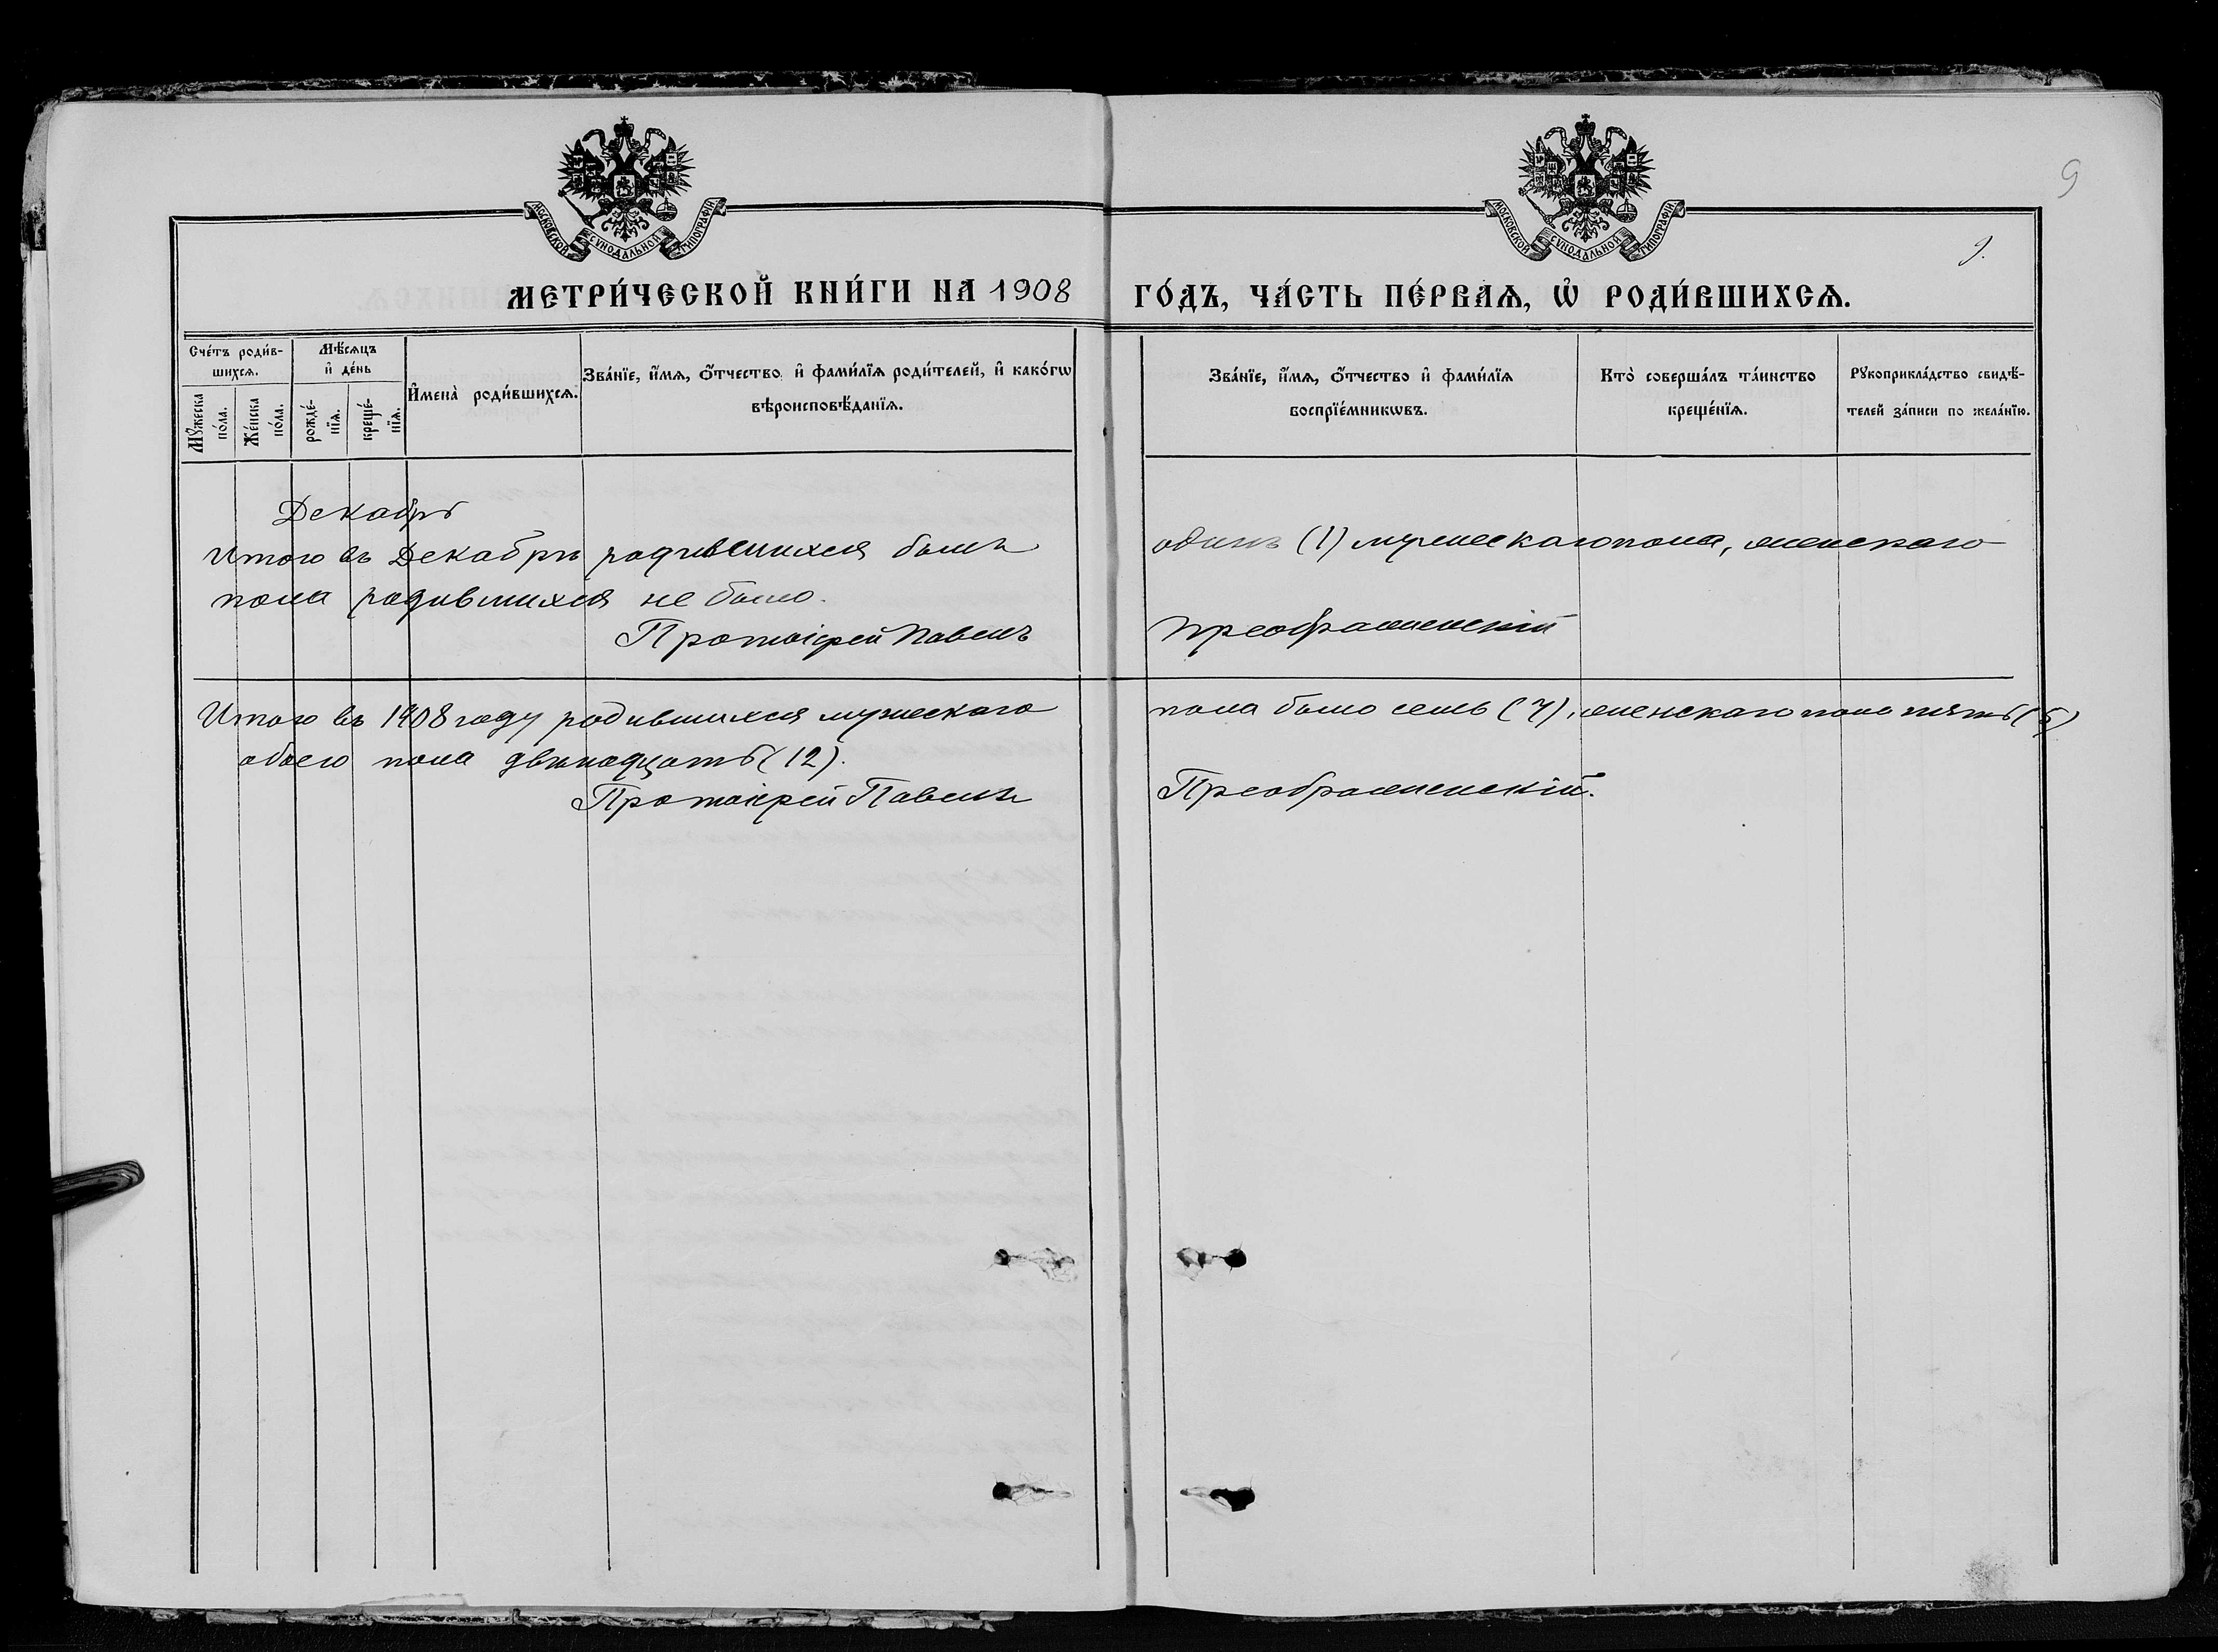 МОСКОВСКОЙ СѴНОДАЛЬНОЙ ТИПОГРАФІИ
МОСКОВСКОЙ СѴНОДАЛЬНОЙ ТИПОГРАФІИ
9
9.
МЕТРИ́ЧЕСКОЙ КНИ́ГИ НА 1908 ГО́ДЪ, ЧА́СТЬ ПЕ́РВАѦ, Ѡ҆ РОДИ́ВШИХСѦ.
Сче́тъ роди́вшихсѧ.
Мꙋ́жеска по́ла.
Же́нска по́ла.
Мѣ́сѧцъ и҆ де́нь
рожде́нїѧ.
креще́нїѧ.
И҆мена̀ роди́вшихсѧ.
Зва́нїе, и҆́мѧ, ѻ҆́тчество, и҆ фами́лїѧ роди́телей, и҆ како́гѡ вѣроисповѣ́данїѧ.
Зва́нїе, и҆́мѧ, ѻ҆́тчество и҆ фами́лїѧ воспрїе́мникѡвъ.
Кто̀ соверша́лъ та́инство креще́нїѧ.
Рꙋкоприкла́дство свидѣ́телей за́писи по жела́нїю.
Декабрь
Итого въ Декабрѣ родившихся былъ одинъ (1) мужескаго пола, женскаго
пола родившихся не было.
Протоіерей Павелъ Преображенскій
Итого въ 1908 году родившихся мужескаго пола было семь (7), женскаго пола пять (5)
обоего пола двѣнадцать (12).
Протоіерей Павелъ Преображенскій.